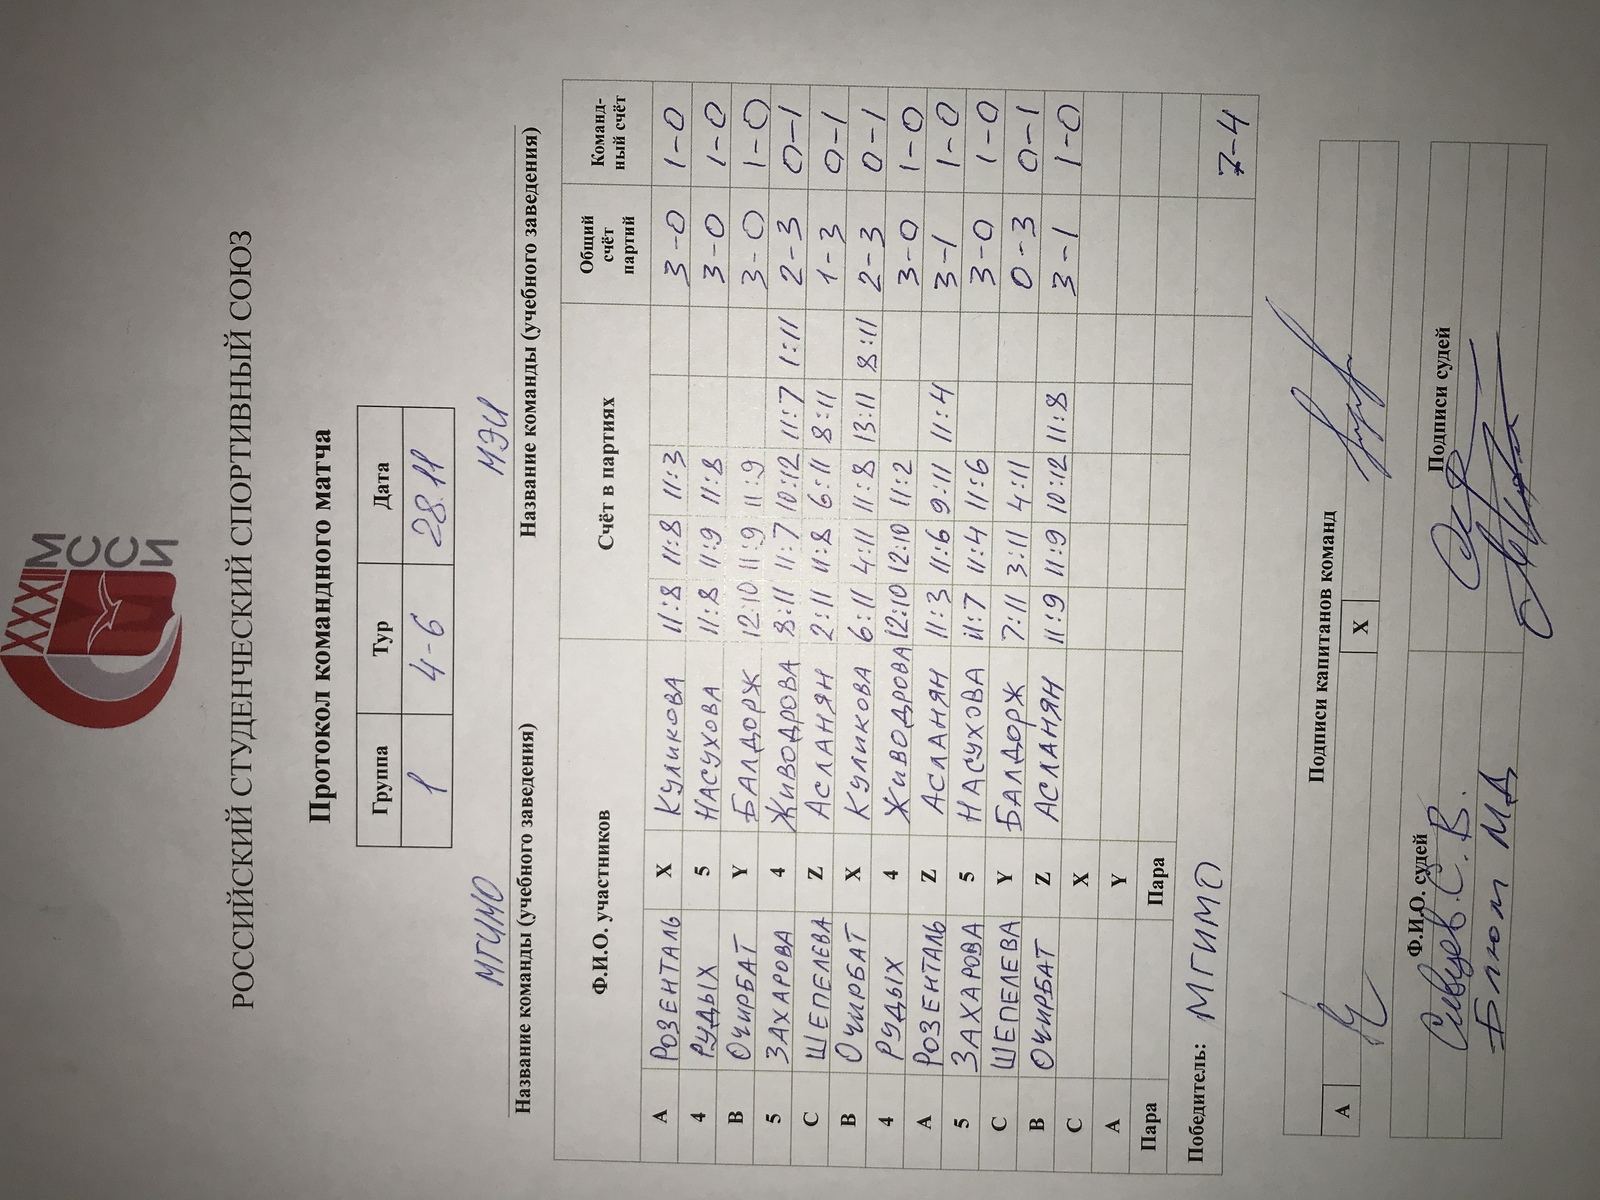 XXXII МССИ
РОССИЙСКИЙ СТУДЕНЧЕСКИЙ СПОРТИВНЫЙ СОЮЗ
Протокол командного матча
Группа Тур Дата
1 4-6 28.11
МГИМО МЭИ
Название команды (учебного заведения) Название команды (учебного заведения)
Ф.И.О. участников Счёт в партиях Общий счёт партий Команд-ный счёт
A РОЗЕНТАЛЬ X КУЛИКОВА 11:8 11:8 11:3 3-0 1-0
4 РУДЫХ 5 НАСУХОВА 11:8 11:9 11:8 3-0 1-0
B ОЧИРБАТ Y БАЛДОРЖ 12:10 11:9 11:9 3-0 1-0
5 ЗАХАРОВА 4 ЖИВОДРОВА 8:11 11:7 10:12 11:7 1:11 2-3 0-1
C ШЕПЕЛЕВА Z АСЛАНЯН 2:11 11:8 6:11 8:11 1-3 0-1
B ОЧИРБАТ X КУЛИКОВА 6:11 4:11 11:8 13:11 8:11 2-3 0-1
4 РУДЫХ 4 ЖИВОДРОВА 12:10 12:10 11:2 3-0 1-0
A РОЗЕНТАЛЬ Z АСЛАНЯН 11:3 11:6 9:11 11:4 3-1 1-0
5 ЗАХАРОВА 5 НАСУХОВА 11:7 11:4 11:6 3-0 1-0
C ШЕПЕЛЕВА Y БАЛДОРЖ 7:11 3:11 4:11 0-3 0-1
B ОЧИРБАТ Z АСЛАНЯН 11:9 11:9 10:12 11:8 3-1 1-0
C X
A Y
Пара Пара
Победитель: МГИМО 7-4
Подписи капитанов команд
A X
Ф.И.О. судей Подписи судей
С.В.
Блюм МД